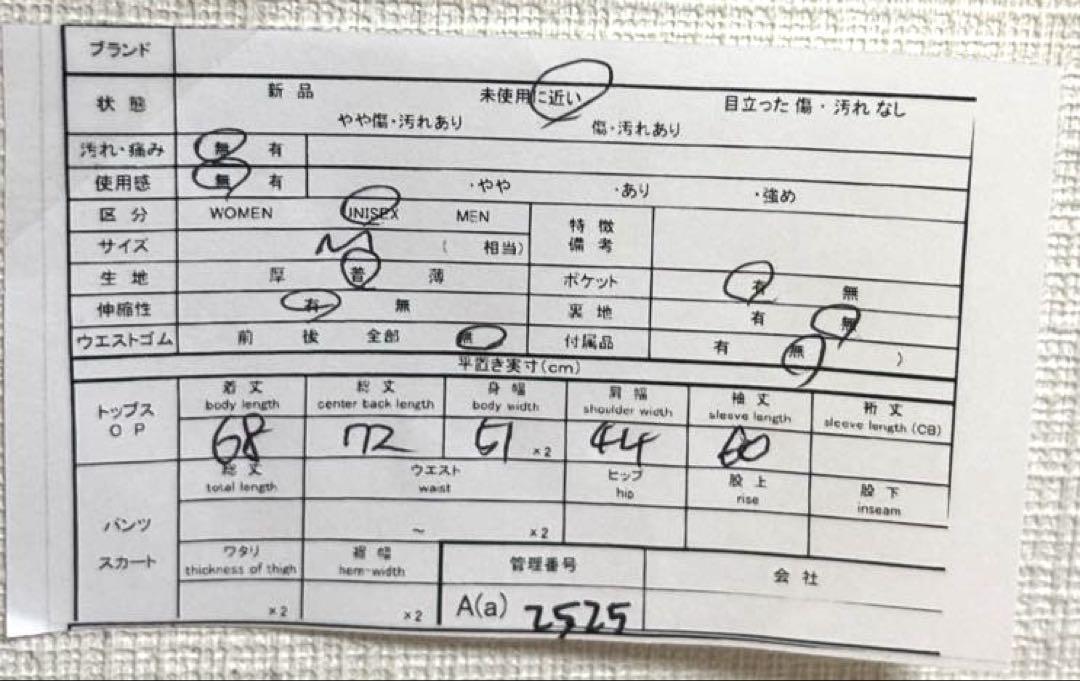 ブランド
状態 新品 未使用に近い 目立った傷・汚れなし
やや傷・汚れあり 傷・汚れあり
汚れ・痛み 無 有
使用感 無 有 ・やや ・あり ・強め
区分 WOMEN UNISEX MEN 特徴
備考
サイズ M ( 相当)
生地 厚 普 薄 ポケット 有 無
伸縮性 有 無 裏地 有 無
ウエストゴム 前 後 全部 無 付属品 有 無 )
平置き実寸(cm)
トップス
OP
着丈 総丈 身幅 肩幅 袖丈 裄丈
body length center back length body width shoulder width sleeve length sleeve length (CB)
68 72 61 ×2 44 60
パンツ
スカート
総丈 ウエスト ヒップ 股上 股下
total length waist hip rise inseam
～ ×2
ワタリ 裾幅 管理番号 会社
thickness of thigh hem-width
×2 ×2 A(a) 2525